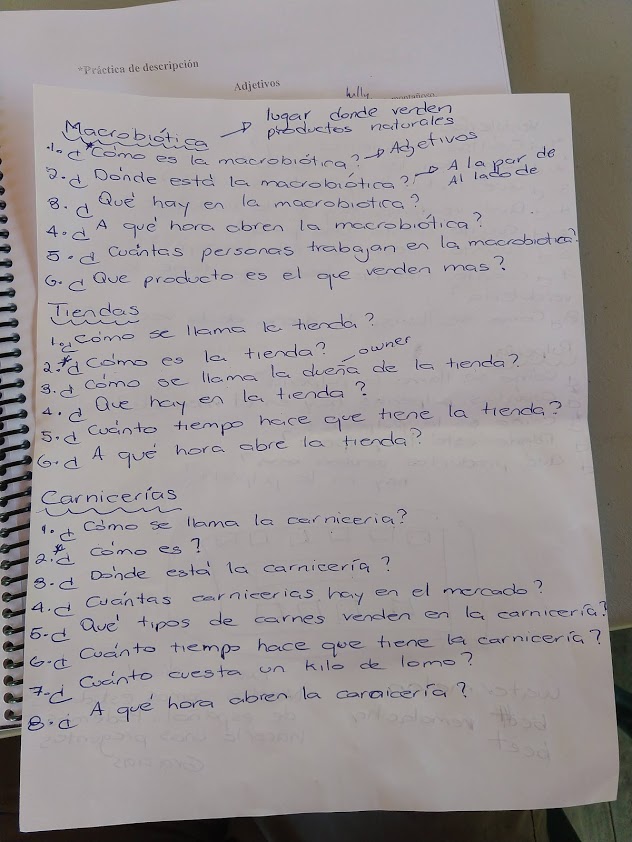 *Práctica de descripción
Adjetivos
hilly
montañoso
Macrobiótica → lugar donde venden
productos naturales
1. ¿*Cómo es la macrobiótica? → Adjetivos
2. ¿ Dónde está la macrobiótica? → A la par de
Al lado de
3. ¿ Qué hay en la macrobiotica?
4. ¿ A qué hora abren la macrobiótica?
5. ¿ Cuántas personas trabajan en la macrobiotica?
6. ¿ Que producto es el que venden mas?
Tiendas
1. ¿ Cómo se llama la tienda?
2.* ¿ Cómo es la tienda? owner
3. ¿ Cómo se llama la dueña de la tienda?
4. ¿ Que hay en la tienda?
5. ¿ Cuánto tiempo hace que tiene la tienda?
6. ¿ A qué hora abre la tienda?
Carnicerías
1. ¿ Cómo se llama la carniceria?
2.* ¿ Cómo es?
3. ¿ Dónde está la carnicería?
4. ¿ Cuántas carnicerias hay en el mercado?
5. ¿ Qué tipos de carnes venden en la carnicería?
6. ¿ Cuánto tiempo hace que tiene la carnicería?
7. ¿ Cuánto cuesta un kilo de lomo?
8. ¿ A qué hora abren la carnicería?